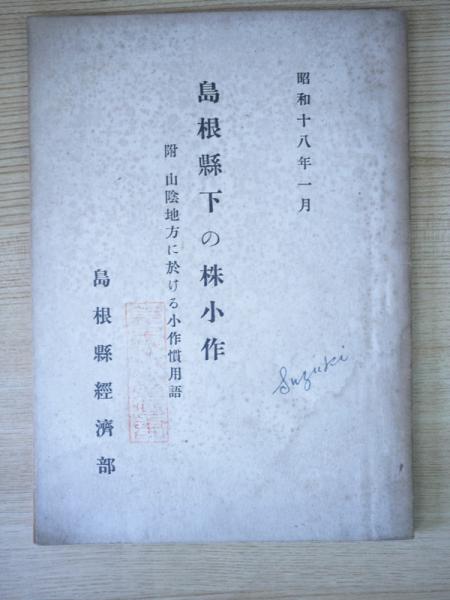 昭和十八年一月
島根縣下の株小作
附 山陰地方に於ける小作慣用語
島根縣經濟部
Suzuki